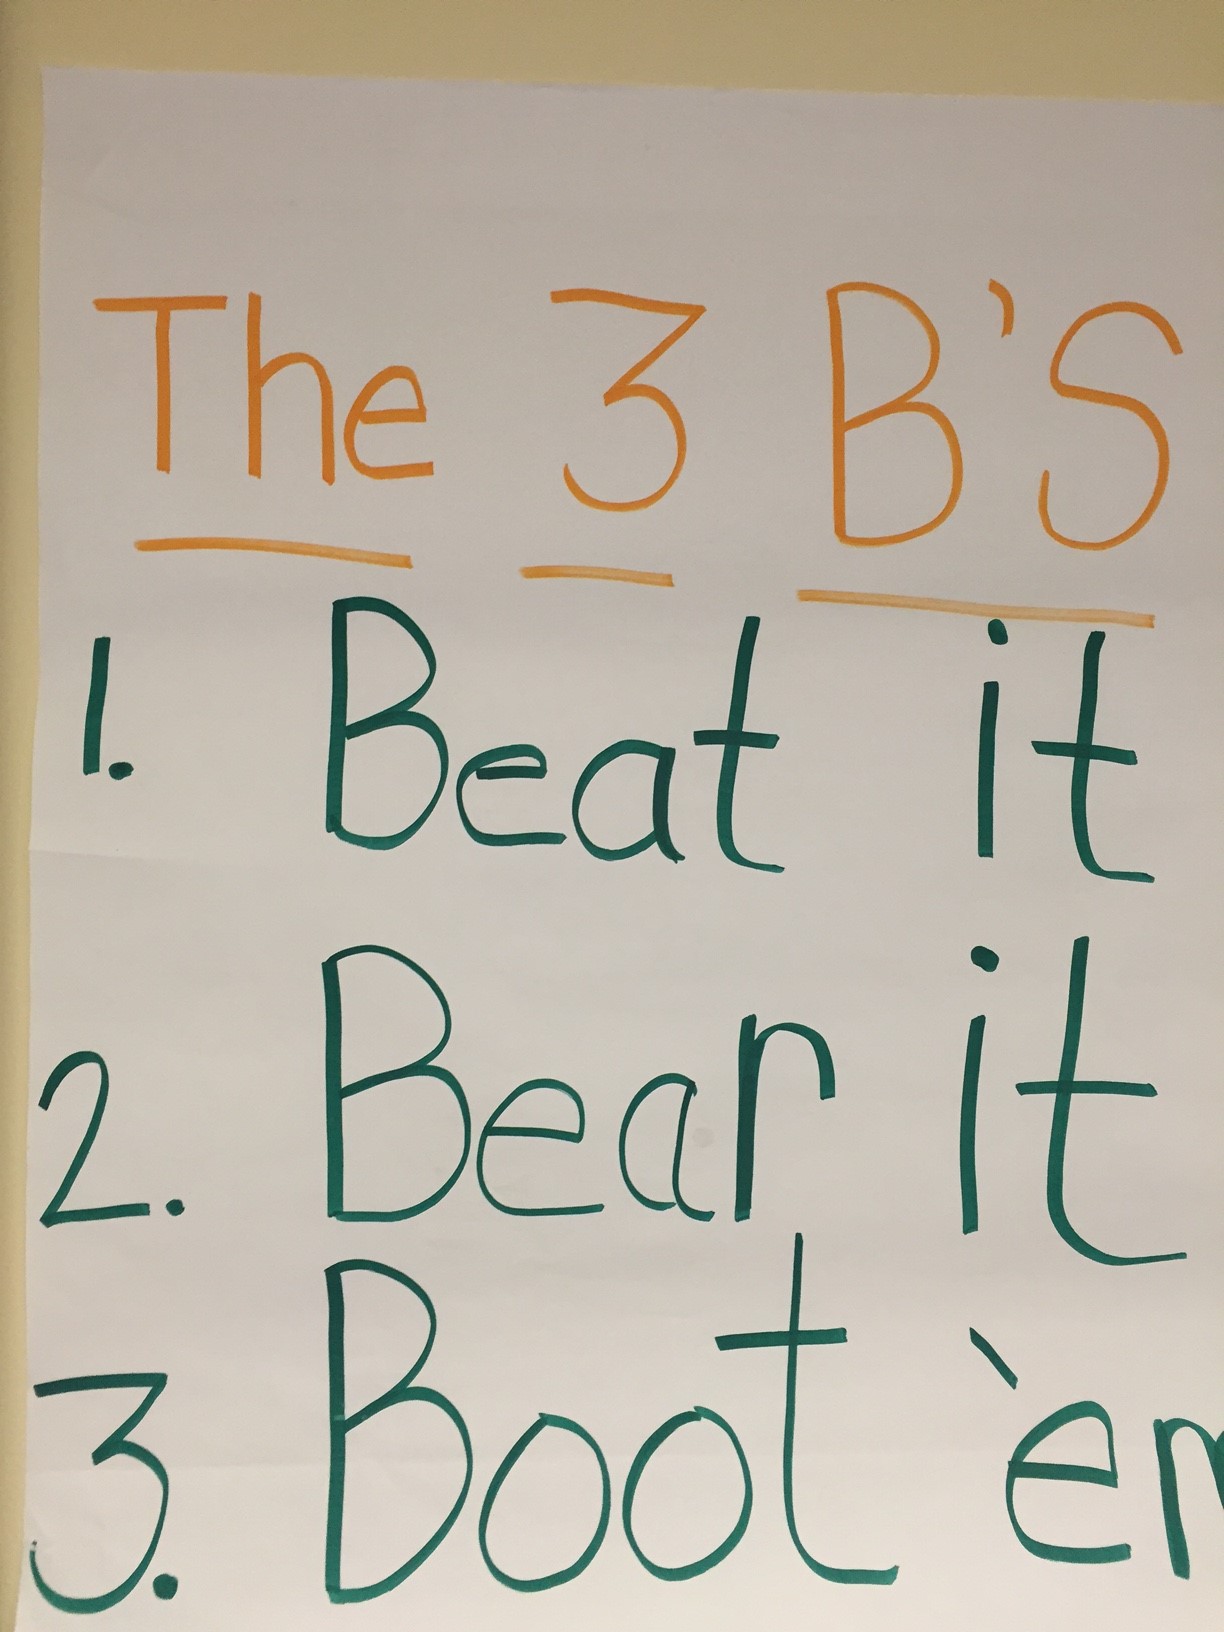 The 3 B'S
1. Beat it
2. Bear it
3. Boot `em